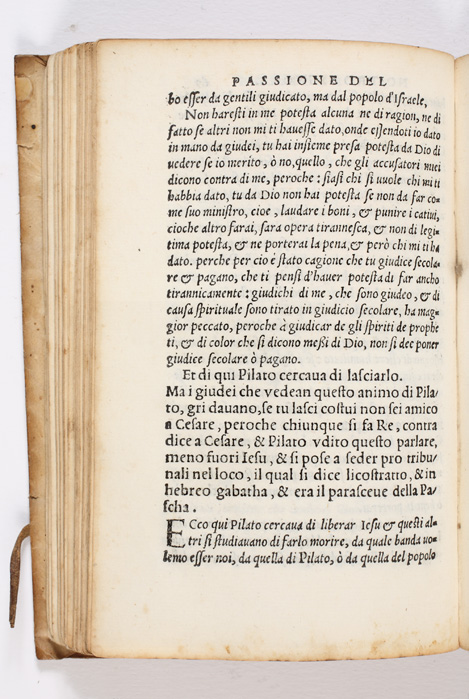 PASSIONE DEL
bo esser da gentili giudicato, ma dal popolo d'Israele,
Non haresti in me potesta alcuna ne di ragion, ne di
fatto se altri non mi ti hauesse dato, onde essendoti io dato
in mano da giudei, tu hai insieme presa potesta da Dio di
uedere se io merito, ò no, quello, che gli accusatori miei
dicono contra di me, peroche : siasi chi si uuole chi mi ti
habbia dato, tu da Dio non hai potesta se non da far co=
me suo ministro, cioe, laudare i boni, & punire i catiui,
cioche altro farai, sara opera tirannesca, & non di legi=
tima potesta, & ne porterai la pena, & però chi mi ti ha
dato. perche per cio è stato cagione che tu giudice secola=
re & pagano, che ti pensi d'hauer potesta di far ancho
tirannicamente : giudichi di me, che sono giudeo, & di
causa spirituale sono tirato in giudicio secolare, ha mag=
gior peccato, peroche à giudicar de gli spiriti de prophe
ti, & di color che si dicono messi di Dio, non si dee poner
giudice secolare ò pagano.
Et di qui Pilato cercaua di lasciarlo.
Ma i giudei che vedean questo animo di Pila=
to, gri dauano, se tu lasci costui non sei amico
a Cesare, peroche chiunque si fa Re, contra
dice a Cesare, & Pilato vdito questo parlare,
meno fuori Iesu, & si pose a seder pro tribu=
nali nel loco, il qual si dice licostratto, & in
hebreo gabatha, & era il parasceue della Pa=
scha.
ECco qui Pilato cercaua di liberar Iesu & questi al=
tri si studiauano di farlo morire, da quale banda uo=
lemo esser noi, da quella di Pilato, ò da quella del popolo